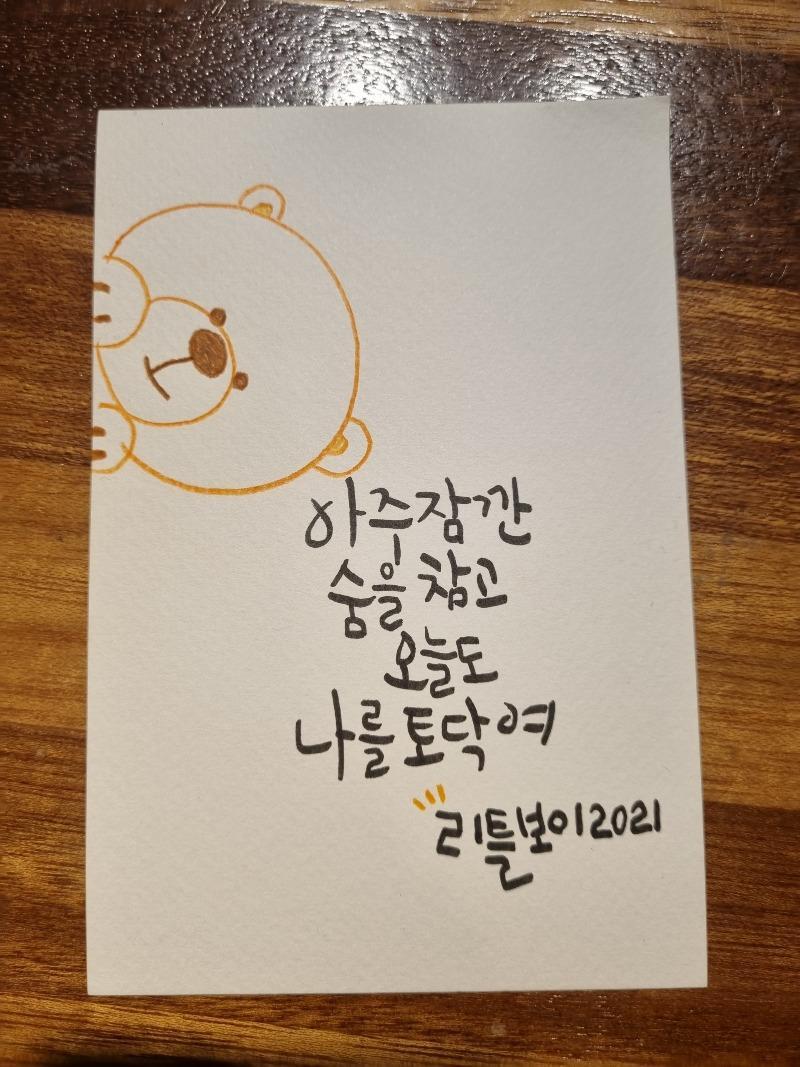 아주 잠깐
숨을 참고
오늘도
나를 토닥여
리틀보이2021